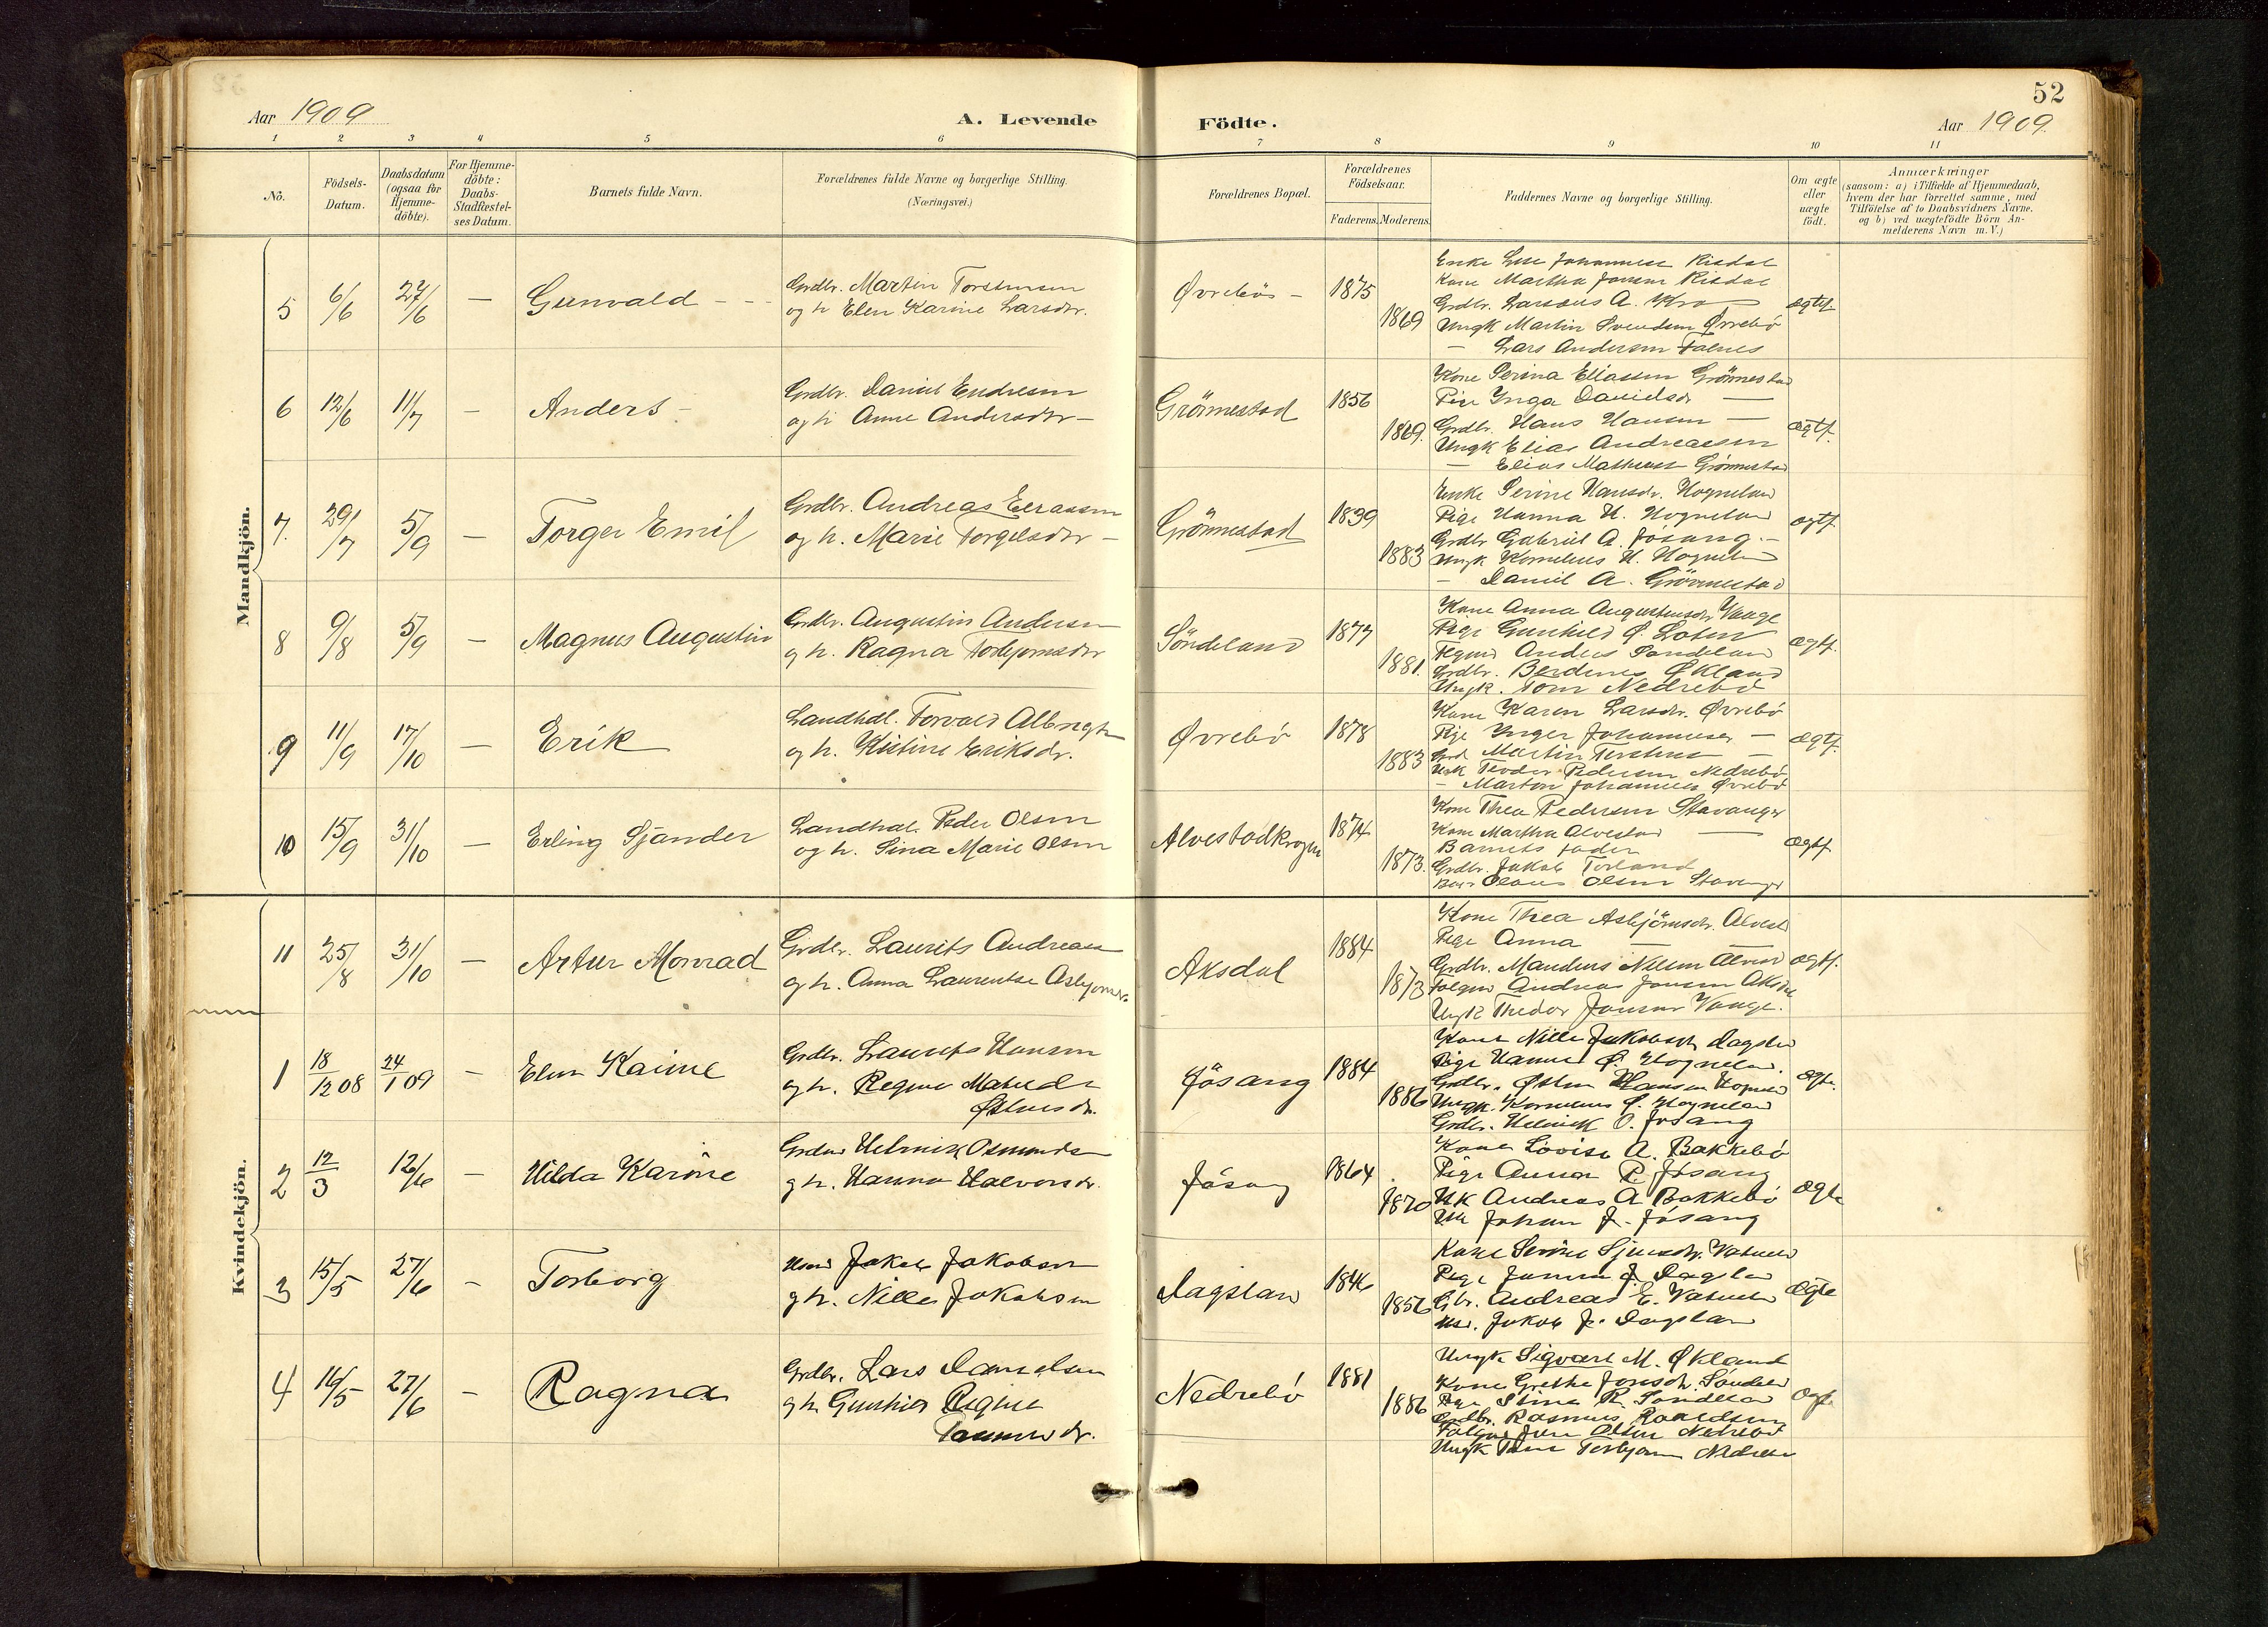 52
Aar 1909
A. Levende
Födte.
Aar 1909.
1 2 3 4 5 6 7 8 9 10 11
No.
Födsels-
Datum.
Daabsdatum
(ogsaa for
Hjemme-
döbte).
For Hjemme-
döbte:
Daabs-
Stadfæstel-
ses Datum.
Barnets fulde Navn.
Forældrenes fulde Navne og borgerlige Stilling.
(Næringsvei.)
Forældrenes Bopæl.
Forældrenes
Födselsaar.
Faderens. Moderens.
Faddernes Navne og borgerlige Stilling.
Om ægte
eller
uægte
födt.
Anmærkninger
(saasom: a) i Tilfælde af Hjemmedaab,
hvem der har forrettet samme, med
Tilföielse af to Daabsvidners Navne.
og b) ved uægtefödte Börn An-
melderens Navn m. V.)
Mandkjön.
5 6/6 27/6 — Gunvald
Grdbr. Martin Torstensen
og h Elen Karine Larsdtr.
Øvrebö 1875
1869
Enke Johannesen Risdal
Kone Martha Jonsen Risdal
Grdbr. A. Kro
Ungk Martin Svendsen Øvrebö
— Lars Andersen
ægtf
6 12/6 11/7 — Anders
Grdbr. Daniel Endresen
og h Anne Andersdtr
Grönnestad 1856
1869.
Kone Serina Eliassen Grönnestad
Pige Inga Danielsdr —
Grdbr. Hans Hansen —
Ungk Elias Andreassen
— Elias Grönnestad
ægtf.
7. 29/7 5/9 — Torger Emil
Grdbr. Andreas
og h. Marie Torgelsdtr
Grönnestad 1899
1883
Enke Serine Hansdr. Hogneland
Pige Hanna H. Hogneland
Grdbr Gabriel A. Jösang
Ungk Kornelius H. Hogneland
— Daniel A. Grönnestad
ægtf.
8 9/8 5/9 — Magnus Augustin
Grdbr. Augustin Andersen
og h. Ragna Torbjörnsdtr
Söndeland 1877
1881.
Kone Anna Augustinsdr Vaage
Pige Gunhild
Anders Söndeland
Grdbr. Berdines Økland
Ungk. Tom Nedrebö
ægtf.
9 11/9 17/10 — Erik
Landhdl. Torvald
og h. Kistine Eriksdr.
Øvrebö 1878
1883
Kone Karen Larsdtr. Øvrebö
Pige Inger Johannesen —
Martin Torstens —
Pedersen Nedrebö
— Marton Johannesen Øvrebö
ægtf.
10 15/9 31/10 — Erling Sjander
Landhdl. Peder Olsen
og h. Sina Marie Olsen
Alvestadkrogen 1874
1873.
Kone Thea Pedersen Stavanger
Kone Martha Alvestad —
Barnets fader
Grdbr. Jakob Torland
Olaus Olsen Stavanger
ægtf.
11 25/8 31/10 — Artur Monrad
Grdbr. Laurits Andreas
og h. Anna Laurentse Asbjörnsdr.
Aksdal 1884
1873
Kone Thea Asbjörnsdr. Alvest
Pige Anna — —
Grdbr. Mandius Nilsen Alvest
Andreas Jonsen Aksdal
Ungk Thedor Jonsen Vaage.
ægtf.
Kvindekjön.
1 18/12 08 24/1 09 — Elen Karine
Grdbr. Laurits Hansen
og h. Regine
Østensdr.
Jösang 1884
1886
Kone Nille Jakobsdr Dagsland
Pige Hanna Ø. Hogneland.
Grdbr. Østen Hansen Hogneland
Ungk. Kornelius Ø. Hogneland
Grdbr. Helmik O. Jösang
ægte.
2 12/3 12/6 — Hilda Karine
Helmik Osmunds
g h. Hanna Halvorsdr.
Jösang 1864.
1870
Kone Lovise A. Bakkebö
Pige Anna P. Jösang
UK Andreas A Bakkebö
UK Johan J. Jösang
ægte
3 15/5 27/6 — Torborg
Jakob Jakobsen
g h. Nille Jakobsen
Dagsland 1846
1856
Kone Serine
Pige J. Dagsland
Gbr. Andreas E.
Jakob J. Dagsland
ægte
4 16/5 27/6 — Ragna
Grdbr. Lars Danielsen
g h Gunhild Regine
Nedrebö 1881
1886
Ungk Sigvart M. Økland
Kone Grethe Jonsdr. Söndel
Pige Stina R. Söndeland
Grdbr. Rasmus
Olsen Nedrebö
Ungk Torbjörn Nedrebö
ægte